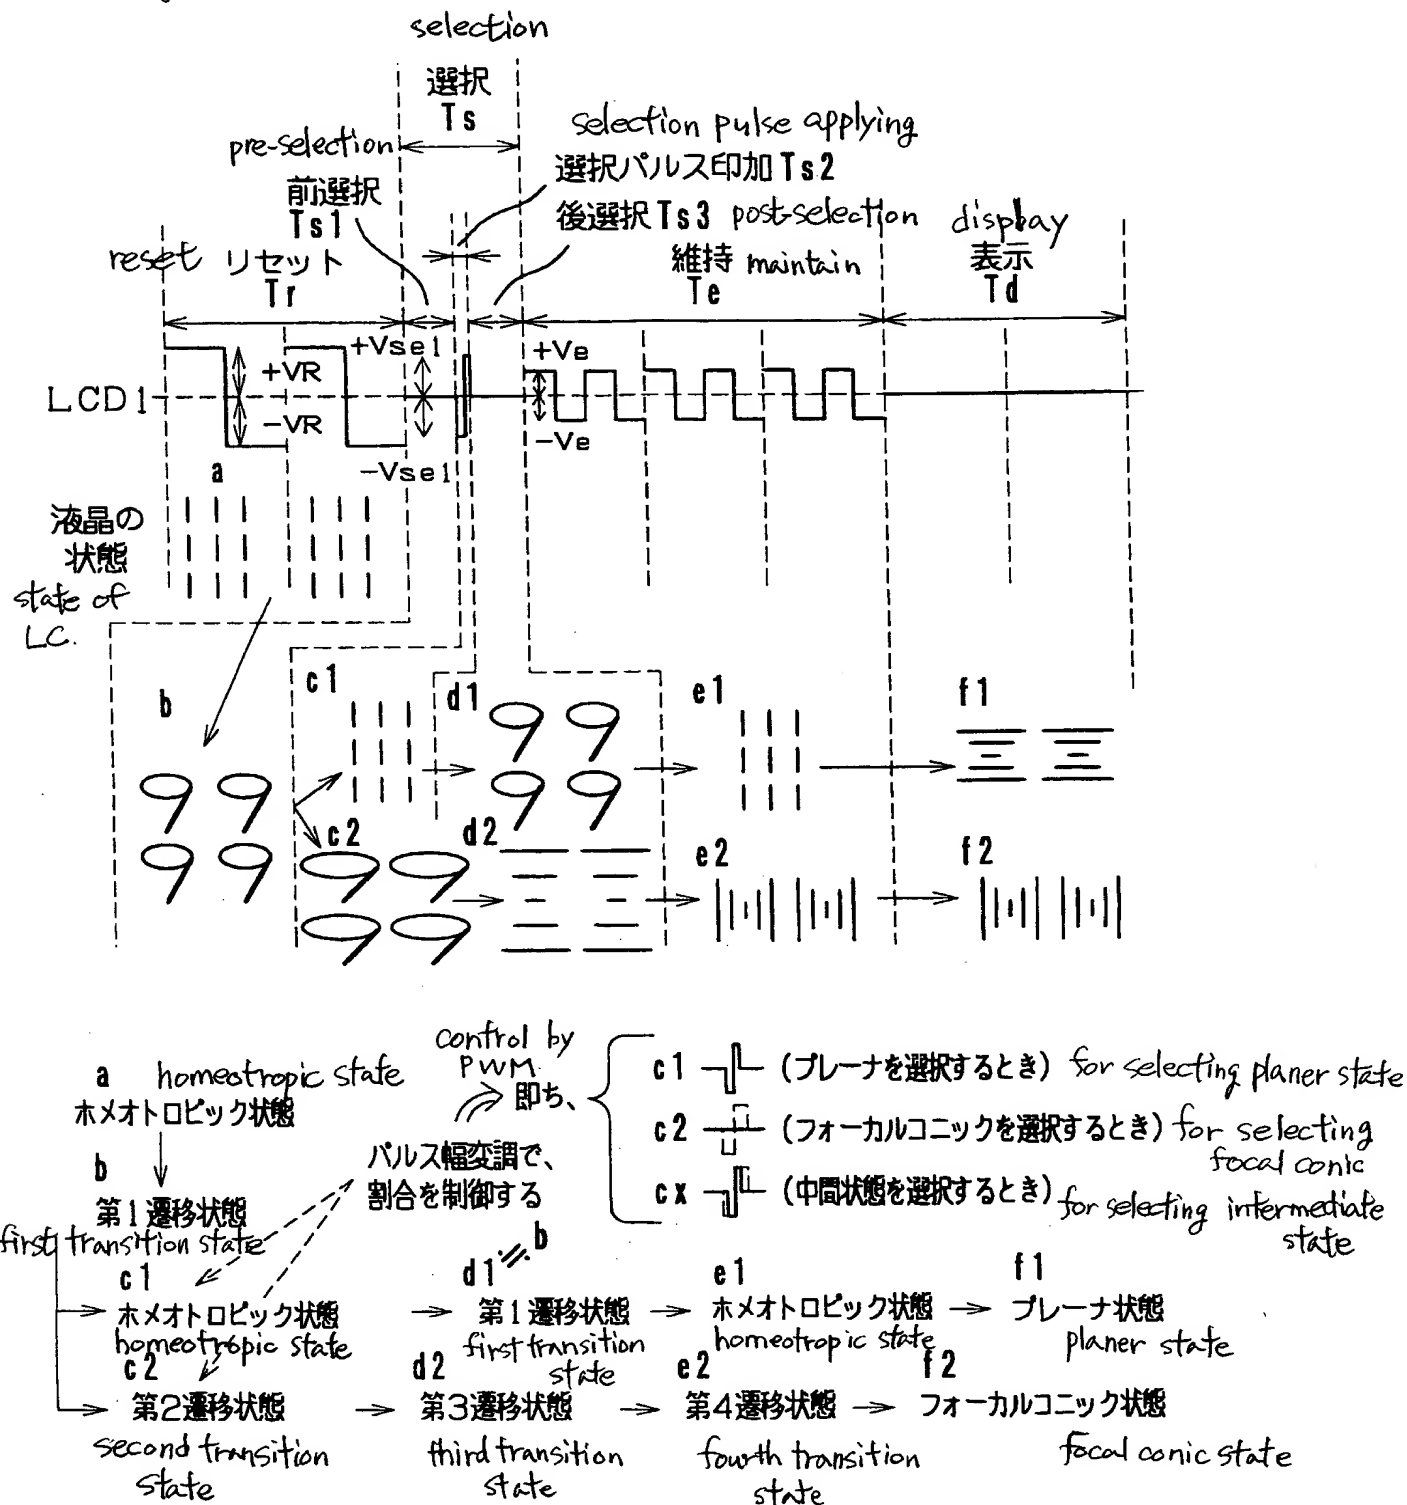 selection
選択
Ts
selection pulse applying
pre-selection
選択パルス印加Ts2
前選択
Ts1
後選択Ts3 post-selection
display
reset リセット
Tr
維持 maintain
Te
表示
Td
+Vsel
+Ve
+VR
LCD1
-VR
-Ve
-Vsel
a
液晶の
状態
state of
LC.
b
c1
d1
e1
f1
c2
d2
e2
f2
control by
PWM
即ち、
a homeotropic state
ホメオトロピック状態
b
第1遷移状態
first transition state
パルス幅変調で、
割合を制御する
c1 (プレーナを選択するとき) for selecting planer state
c2 (フォーカルコニックを選択するとき) for selecting
focal conic
cx (中間状態を選択するとき) for selecting intermediate
state
c1
ホメオトロピック状態
homeotropic state
d1 ≒ b
第1遷移状態
first transition
state
e1
ホメオトロピック状態
homeotropic state
f1
プレーナ状態
planer state
c2
第2遷移状態
second transition
state
d2
第3遷移状態
third transition
state
e2
第4遷移状態
fourth transition
state
f2
フォーカルコニック状態
focal conic state